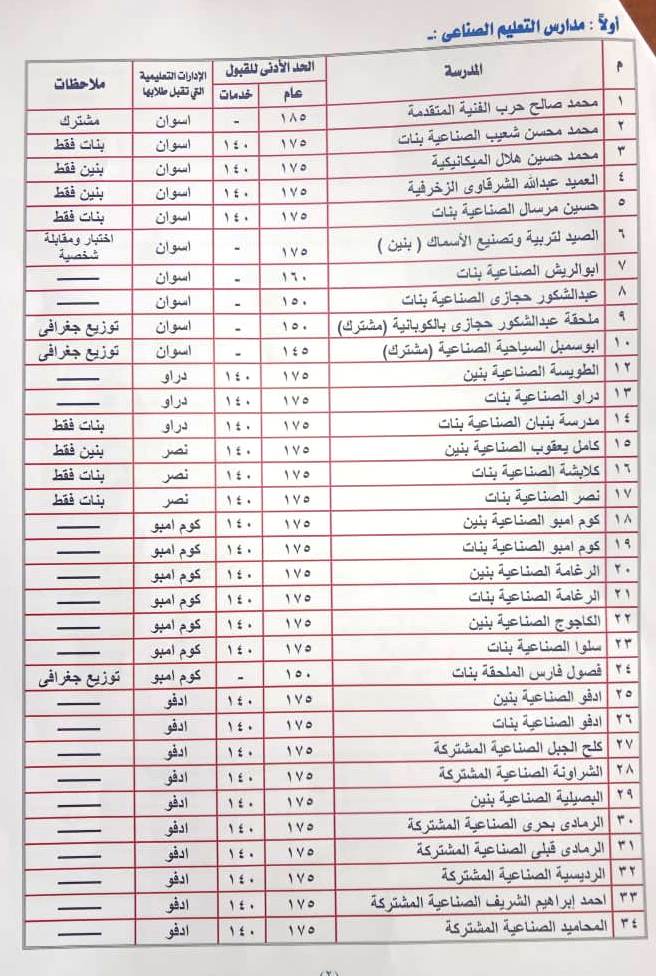 أولاً : مدارس التعليم الصناعى :ـ
م | المدرسة | الحد الأدنى للقبول | الإدارات التعليمية التي تقبل طلابها | ملاحظات
عام | خدمات
١ | محمد صالح حرب الفنية المتقدمة | ١٨٥ | - | اسوان | مشترك
٢ | محمد محسن شعيب الصناعية بنات | ١٧٥ | ١٤٠ | اسوان | بنات فقط
٣ | محمد حسين هلال الميكانيكية | ١٧٥ | ١٤٠ | اسوان | بنين فقط
٤ | العميد عبدالله الشرقاوى الزخرفية | ١٧٥ | ١٤٠ | اسوان | بنين فقط
٥ | حسين مرسال الصناعية بنات | ١٧٥ | ١٤٠ | اسوان | بنات فقط
٦ | الصيد لتربية وتصنيع الأسماك ( بنين ) | ١٧٥ | - | اسوان | اختبار ومقابلة شخصية
٧ | ابوالريش الصناعية بنات | ١٦٠ | - | اسوان | ——
٨ | عبدالشكور حجازى الصناعية بنات | ١٥٠ | - | اسوان | ——
٩ | ملحقة عبدالشكور حجازى بالكوبانية (مشترك) | ١٥٠ | - | اسوان | توزيع جغرافى
١٠ | ابوسمبل السياحية الصناعية (مشترك) | ١٤٥ | - | اسوان | توزيع جغرافى
١٢ | الطويسة الصناعية بنين | ١٧٥ | ١٤٠ | دراو | ——
١٣ | دراو الصناعية بنات | ١٧٥ | ١٤٠ | دراو | ——
١٤ | مدرسة بنبان الصناعية بنات | ١٧٥ | ١٤٠ | دراو | بنات فقط
١٥ | كامل يعقوب الصناعية بنين | ١٧٥ | ١٤٠ | نصر | بنين فقط
١٦ | كلابشة الصناعية بنات | ١٧٥ | ١٤٠ | نصر | بنات فقط
١٧ | نصر الصناعية بنات | ١٧٥ | ١٤٠ | نصر | بنات فقط
١٨ | كوم امبو الصناعية بنين | ١٧٥ | ١٤٠ | كوم امبو | ——
١٩ | كوم امبو الصناعية بنات | ١٧٥ | ١٤٠ | كوم امبو | ——
٢٠ | الرغامة الصناعية بنين | ١٧٥ | ١٤٠ | كوم امبو | ——
٢١ | الرغامة الصناعية بنات | ١٧٥ | ١٤٠ | كوم امبو | ——
٢٢ | الكاجوج الصناعية بنين | ١٧٥ | ١٤٠ | كوم امبو | ——
٢٣ | سلوا الصناعية بنات | ١٧٥ | ١٤٠ | كوم امبو | ——
٢٤ | فصول فارس الملحقة بنات | ١٥٠ | - | كوم امبو | توزيع جغرافى
٢٥ | ادفو الصناعية بنين | ١٧٥ | ١٤٠ | ادفو | ——
٢٦ | ادفو الصناعية بنات | ١٧٥ | ١٤٠ | ادفو | ——
٢٧ | كلح الجبل الصناعية المشتركة | ١٧٥ | ١٤٠ | ادفو | ——
٢٨ | الشراونة الصناعية المشتركة | ١٧٥ | ١٤٠ | ادفو | ——
٢٩ | البصيلية الصناعية بنين | ١٧٥ | ١٤٠ | ادفو | ——
٣٠ | الرمادى بحرى الصناعية المشتركة | ١٧٥ | ١٤٠ | ادفو | ——
٣١ | الرمادى قبلى الصناعية المشتركة | ١٧٥ | ١٤٠ | ادفو | ——
٣٢ | الرديسية الصناعية المشتركة | ١٧٥ | ١٤٠ | ادفو | ——
٣٣ | احمد إبراهيم الشريف الصناعية المشتركة | ١٧٥ | ١٤٠ | ادفو | ——
٣٤ | المحاميد الصناعية المشتركة | ١٧٥ | ١٤٠ | ادفو | ——
(٢)